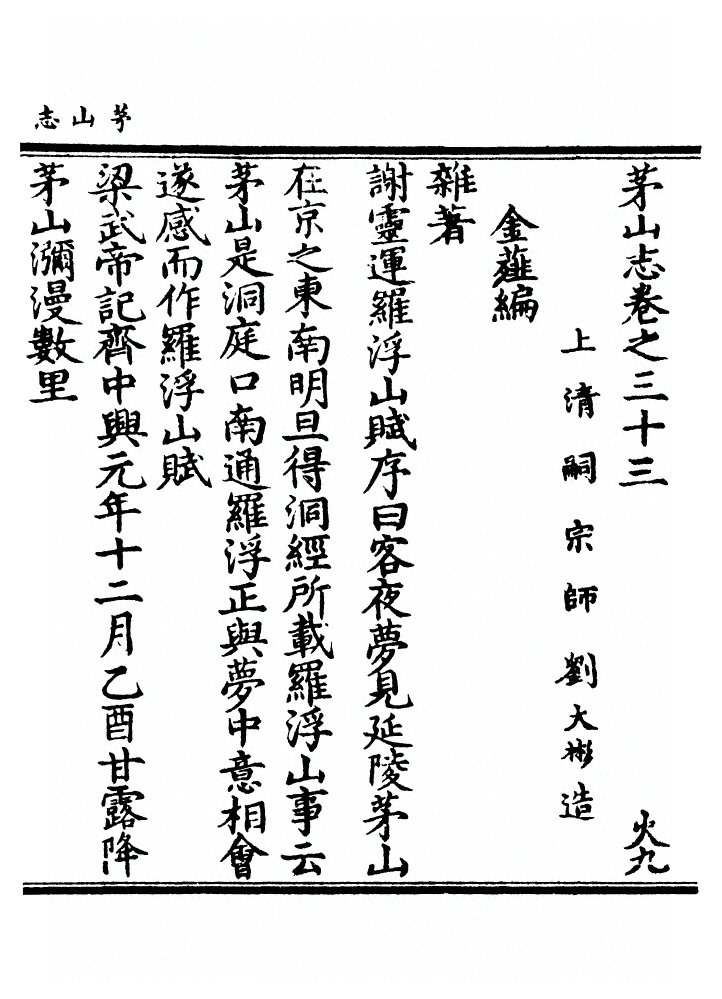 茅山志
茅山志卷之三十三 火九
上清嗣宗師劉大彬造
金薤編
雜著
謝靈運羅浮山賦序曰客夜夢見延陵茅山
在京之東南明旦得洞經所載羅浮山事云
茅山是洞庭口南通羅浮正與夢中意相會
遂感而作羅浮山賦
梁武帝記齊中興元年十二月乙酉甘露降
茅山瀰漫數里